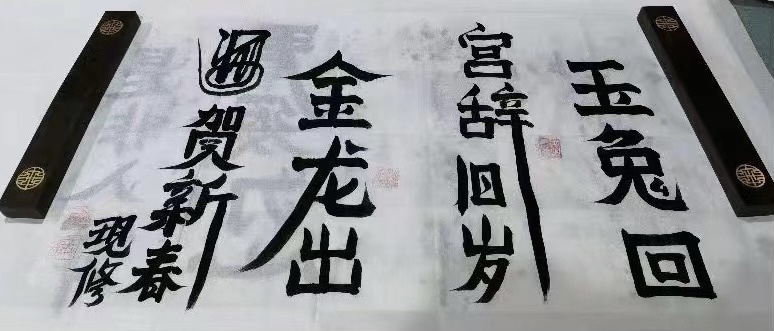 玉兔回
宫辞旧岁
金龙出
贺新春
现修